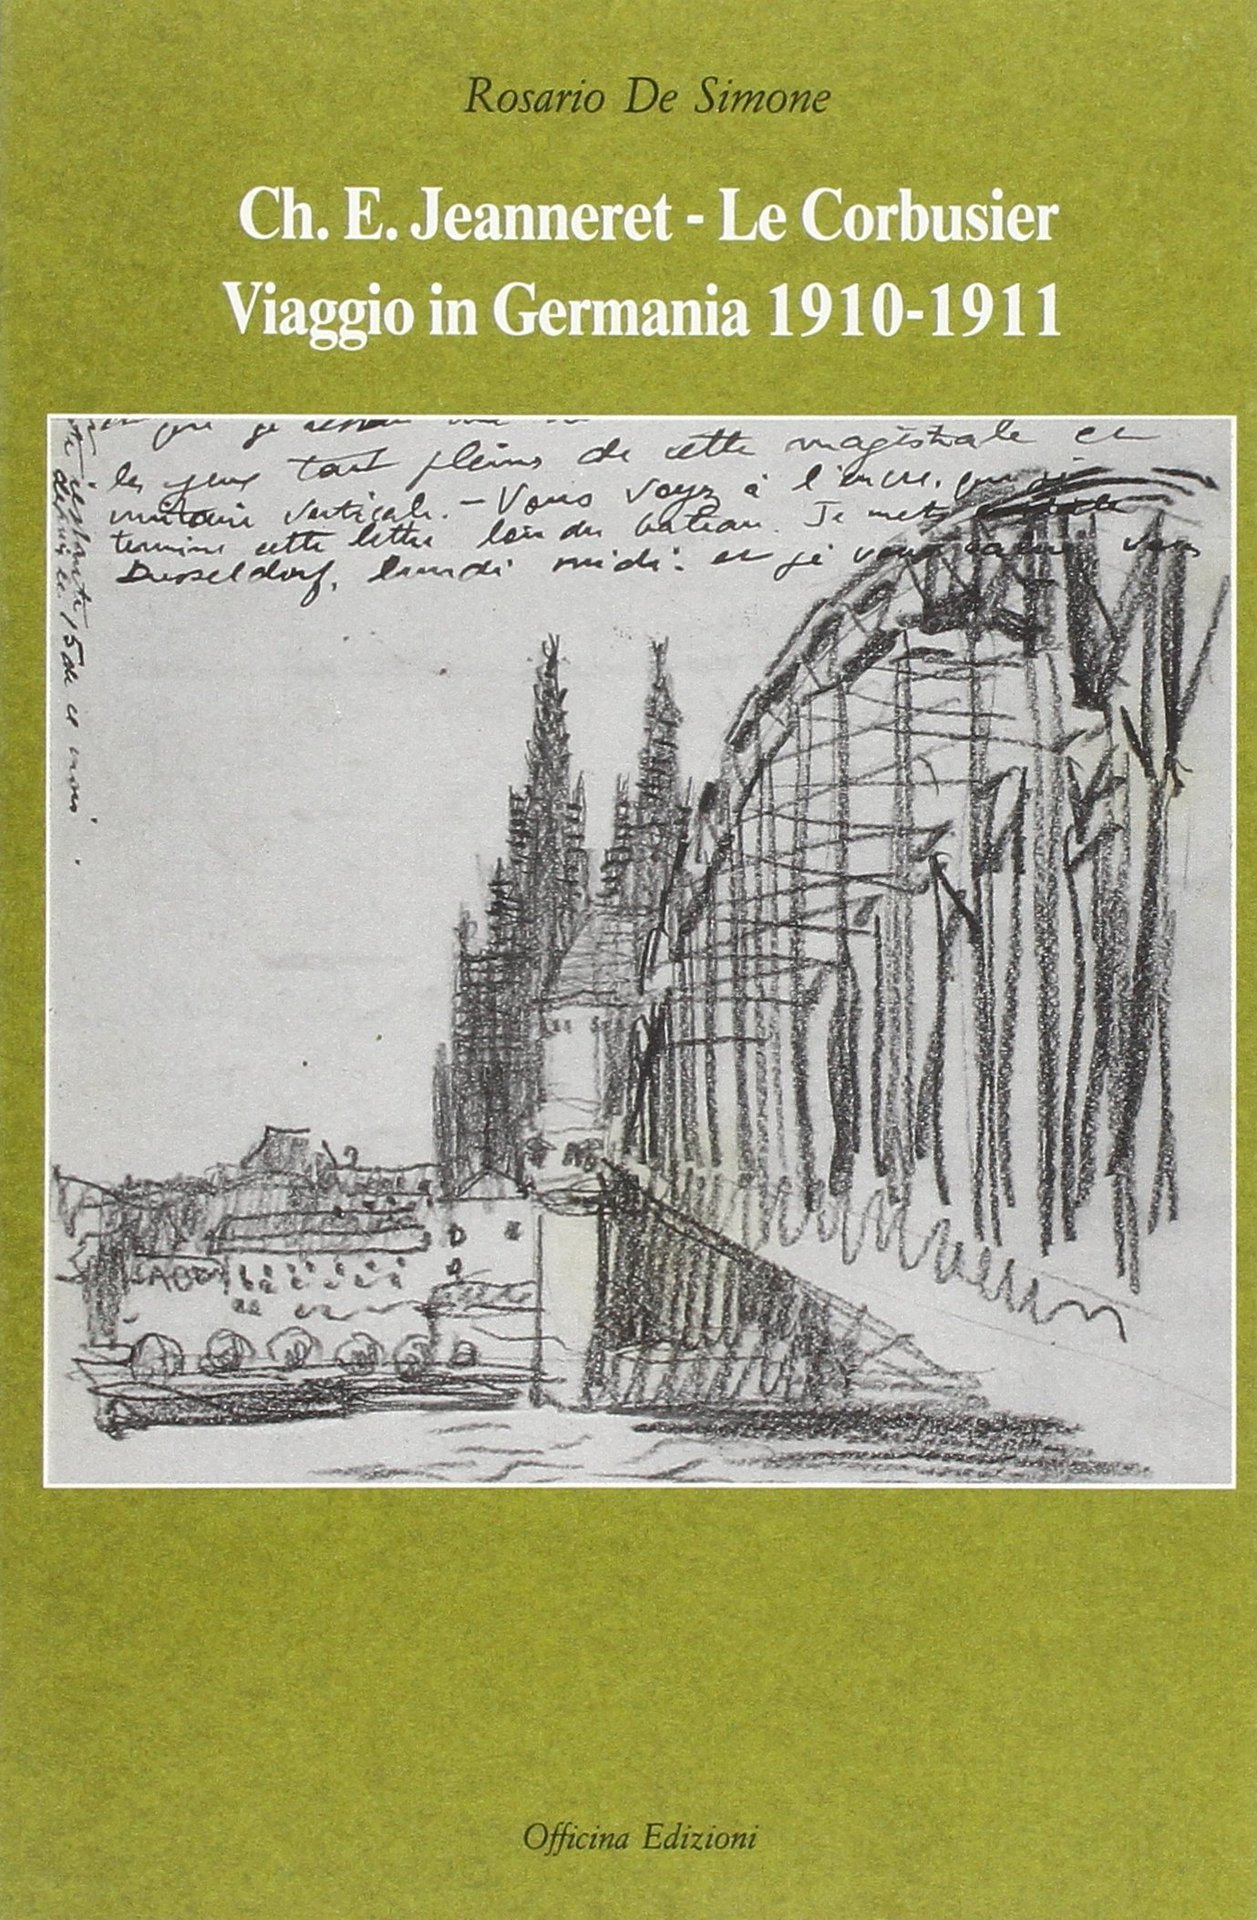 Rosario De Simone
Ch. E. Jeanneret - Le Corbusier
Viaggio in Germania 1910-1911
les yeux tout pleins de cette magistrale et
verticale. — Vous voyez à l'encre, que je
termine cette lettre loin du bateau. Je mets
Dusseldorf, lundi midi. et je vous
15 de ce mois
Officina Edizioni